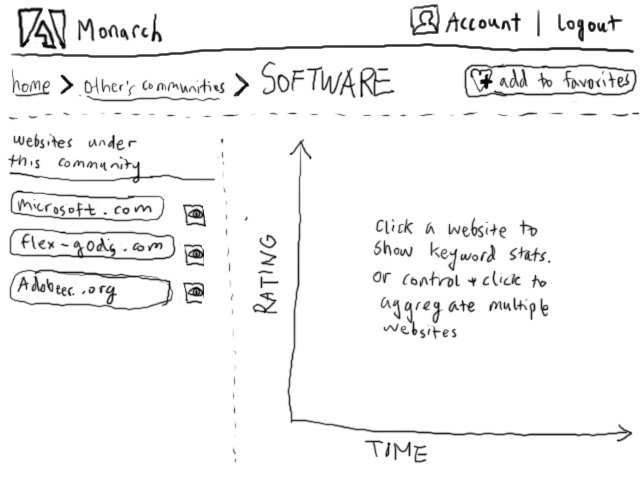 Monarch
Account | Logout
home > other's communities > SOFTWARE
add to favorites
websites under
this community
microsoft.com
flex-gods.com
Adobeer.org
RATING
click a website to
show keyword stats.
or control + click to
aggregate multiple
websites
TIME